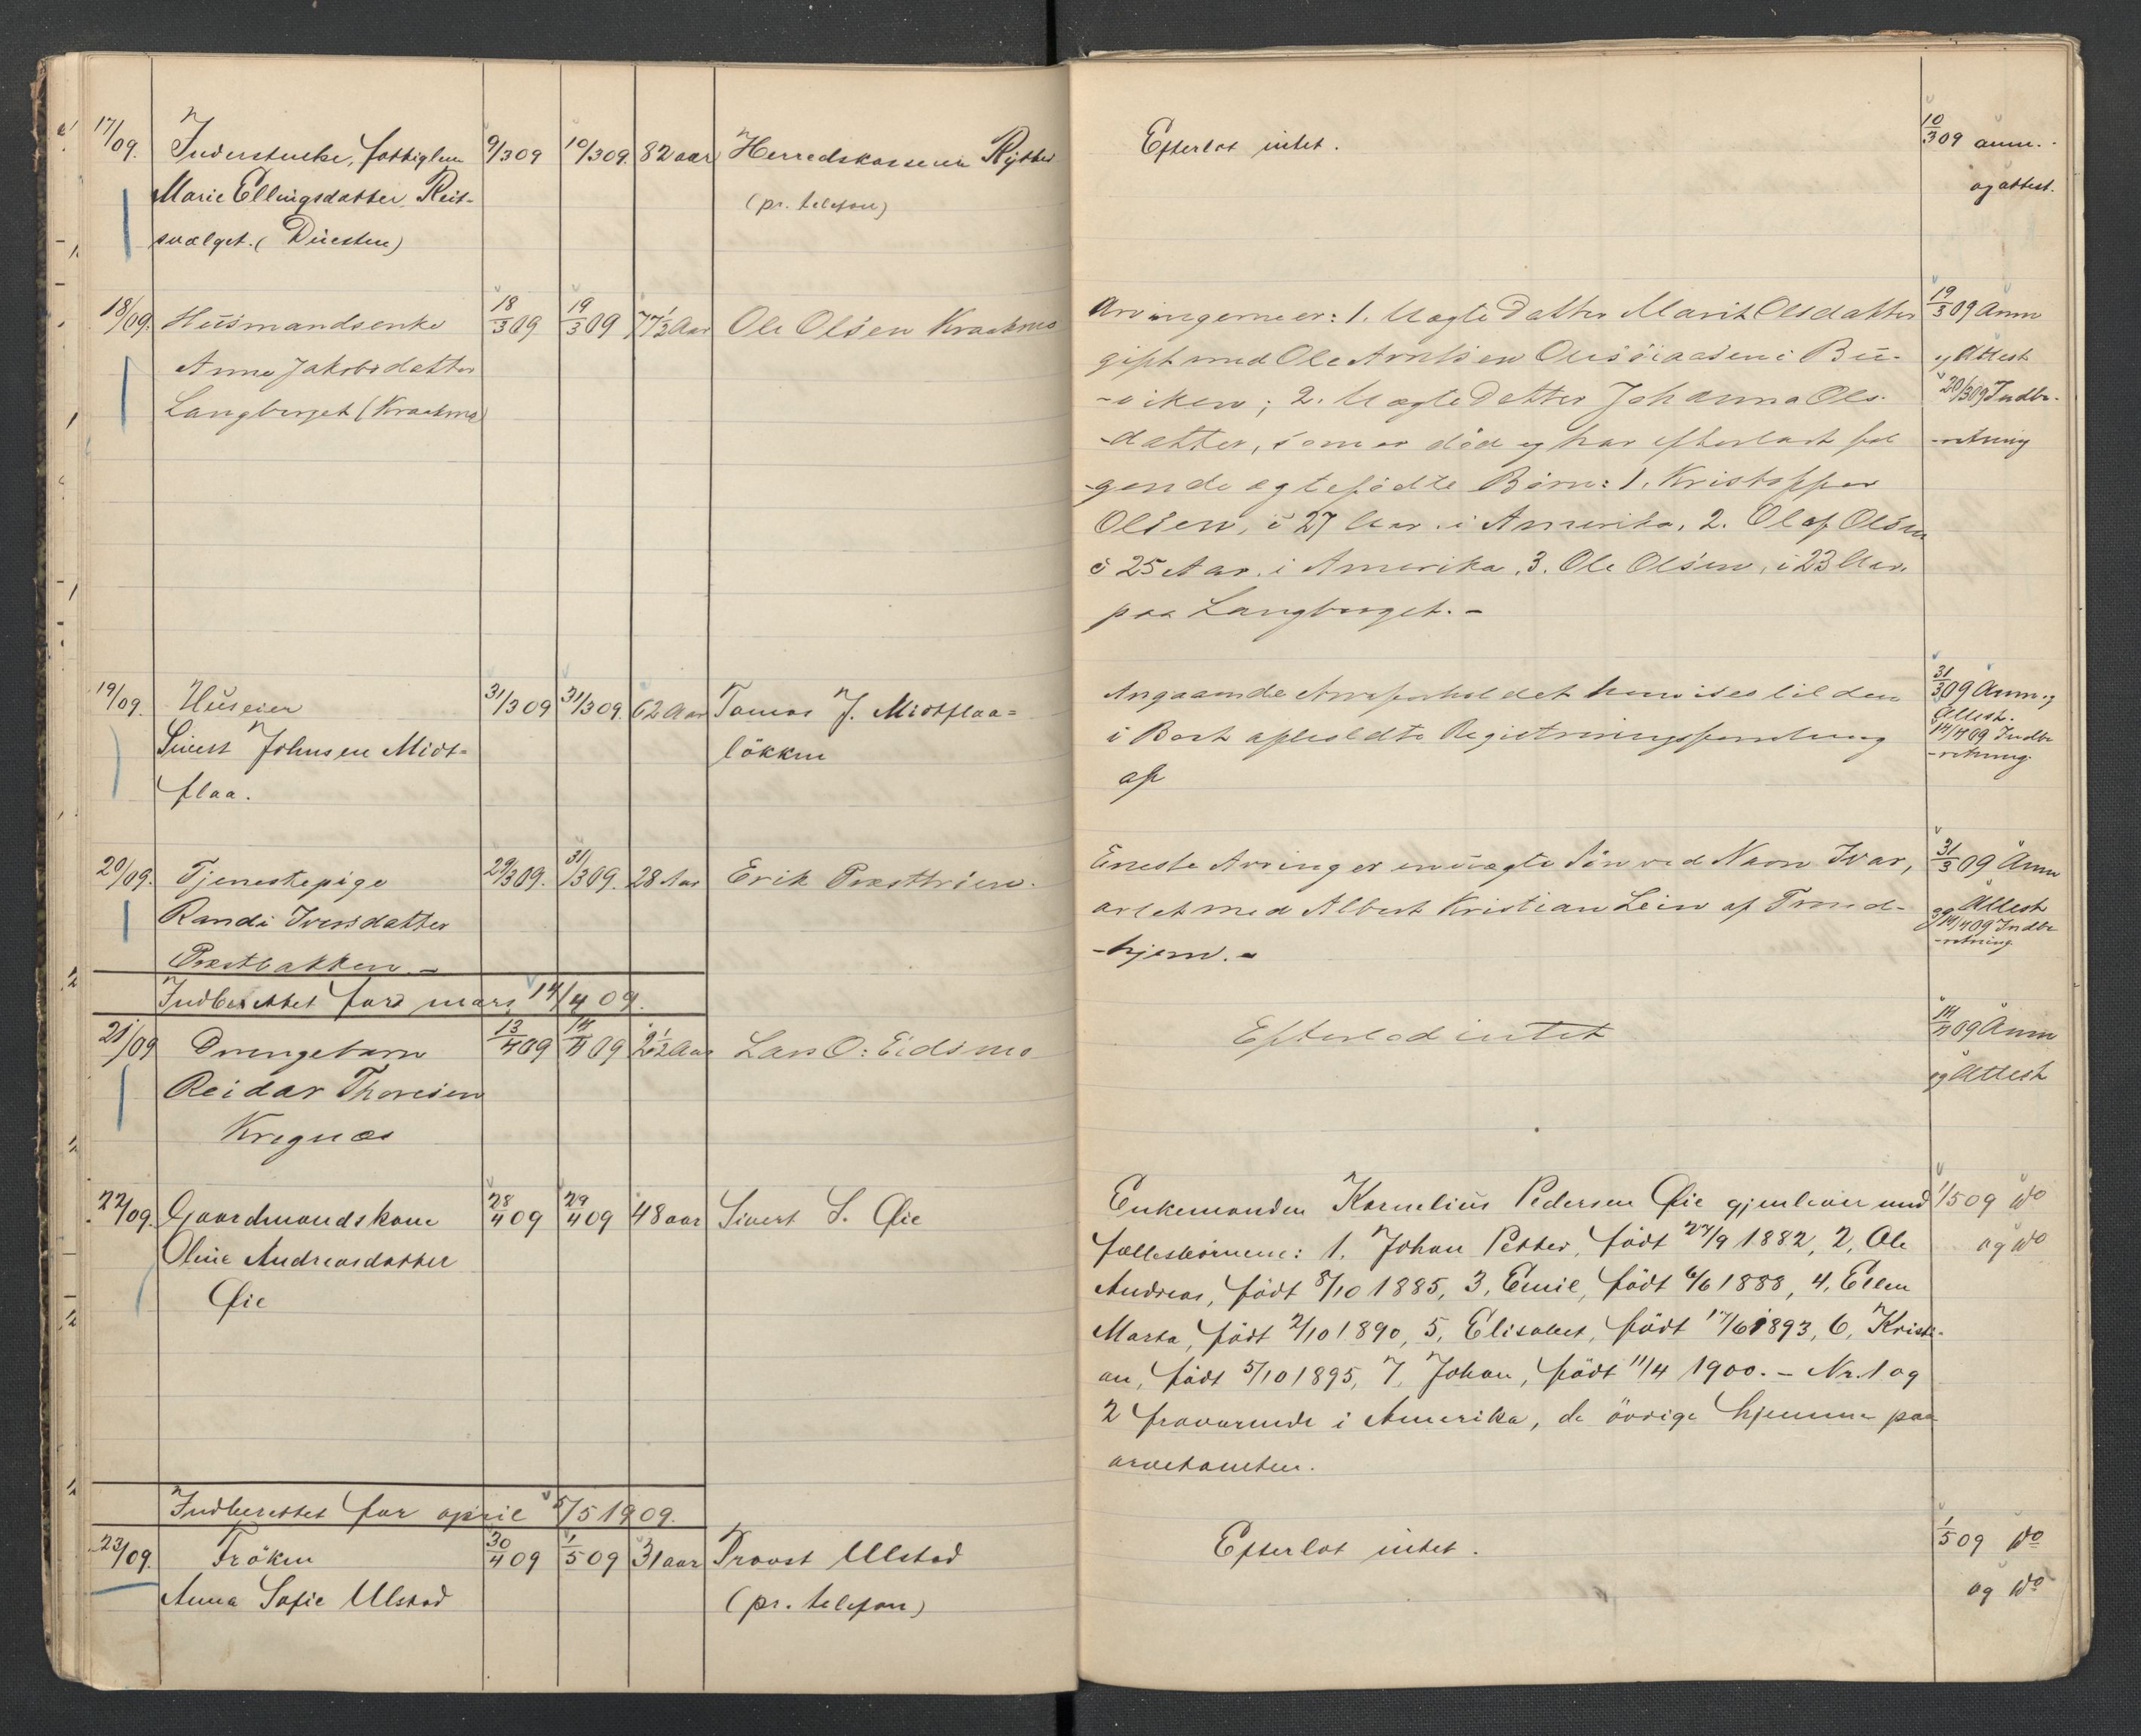 17/09. Inderstenke, fattiglem 9/3 09 10/3 09. 82 aar Herredskasserer Rytter
Marie Ellingsdatter Reit- (pr. telefon)
svælget. (Duesten)
Efterlot intet. 10/3 09 anm.
og attest.
18/09. Husmandsenke 18/3 09 19/3 09 77 1/2 Aar Ole Olsen Kraakmo
Anne Jakobsdatter
Langberget (Kraakmo)
Arvingerne er: 1. Uægte Datter Marit Olsdatter 19/3 09 Anm
gift med Ole Arntsen i Bu- og Attest
-viken; 2. Uægte Datter Johanna Ols- 20/3 09 Indbe-
-datter, som er död og har efterladt föl -retning
-gende ægtefödte Börn: 1. Kristoffer
Olsen, i 27 Aar. i Amerika, 2. Olaf Olsen
i 25 Aar. i Amerika. 3. Ole Olsen, i 23 Aar.
paa Langberget. -
19/09. Huseier 31/3 09 31/3 09. 62 Aar Tomas J. Midtflaa=
Sivert Johnsen Midt= lökken
flaa.
Angaaende Arveforholdet henvises til den 31/3 09 Anm. og
i Boet afholdte Registreringsforretning Attest.
af 14/4 09 Indbe
-retning
20/09. Tjenestepige 29/3 09. 31/3 09. 28 Aar Erik Præsttröen.
Randi Iversdatter
Præstbakken. -
Eneste Arving er en uægte Sön ved Navn Ivar, 31/3 09 Anm
avlet med Albert Kristian Lein af Trond- og Attest
-hjem. - 14/4 09 Indbe
-retning
Indberettet for mars 14/4 09.
21/09 Drengebarn 13/4 09 14/4 09 2 1/2 Aar Lars O. Eidsmo
Reidar Thoresen
Kregnæs
Efterlod intet 14/4 09 Anm
og Attest
22/09. Gaardmandskone 28/4 09 29/4 09 48 aar Sivert S. Øie
Oline Andreasdatter
Øie
Enkemanden Kornelius Pedersen Øie gjenlever med 1/5 09 do
fællesbörnene: 1. Johan Petter, födt 27/9 1882, 2, Ole og do
Andreas, födt 8/10 1885, 3, Emil, födt 6/6 1888, 4, Ellen
Marta, födt 2/10 1890, 5, Elisabet, födt 17/6 1893, 6, Kristi-
an, födt 5/10 1895, 7, Johan, födt 11/4 1900. - Nr. 1 og
2 fraværende i Amerika, de övrige hjemme paa
arvetomten.
Indberettet for april 5/5 1909.
23/09. Fröken 30/4 09 1/5 09 31 aar Provst Ulstad
Anna Sofie Ulstad (pr. telefon)
Efterlot intet. 1/5 09 do
og do